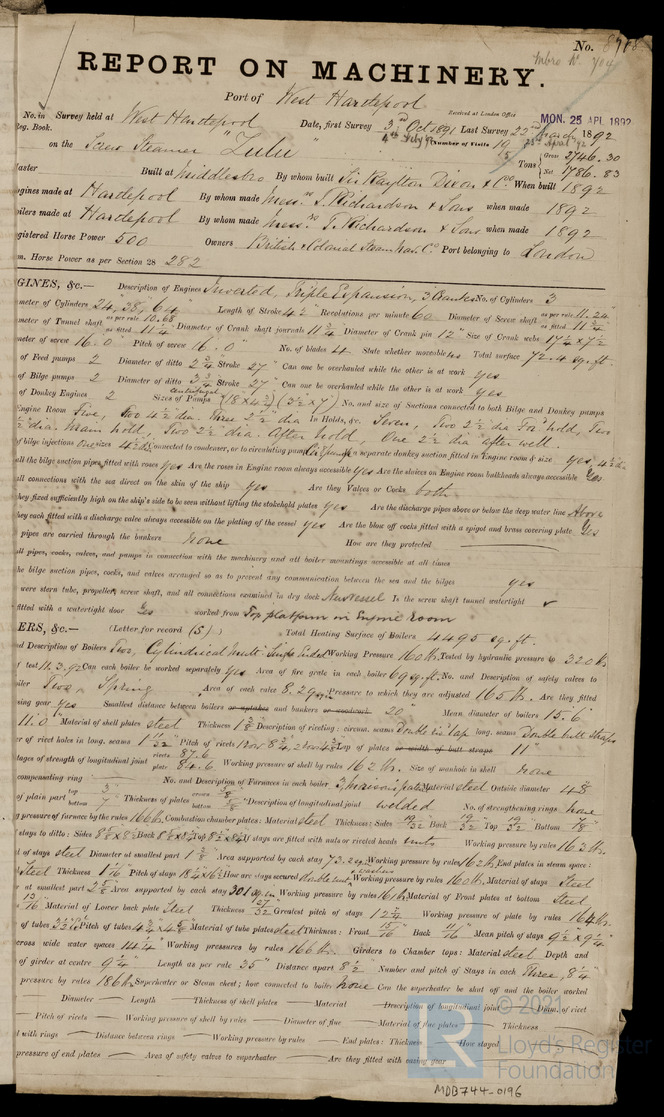 No. 8788
REPORT ON MACHINERY.
Port of West Hartlepool
Received at London Office MON. 25 APL 1892
No. in Survey held at West Hartlepool Date, first Survey 3rd Oct 1891 Last Survey 22nd March 1892
Reg. Book.
Number of Visits 19
on the Screw Steamer "Zulu" Tons Gross 2746.30
Net 1786.83
Master Built at Middlesbro By whom built Sir Raylton Dixon & Co When built 1892
Engines made at Hartlepool By whom made Messrs T. Richardson & Sons when made 1892
Boilers made at Hartlepool By whom made Messrs T. Richardson & Sons when made 1892
Registered Horse Power 500 Owners British & Colonial Steam Nav. Co Port belonging to London
m. Horse Power as per Section 28 282
GINES, &c.— Description of Engines Inverted, Triple Expansion, 3 Cranks No. of Cylinders 3
meter of Cylinders 24, 38, 64 Length of Stroke 42 Revolutions per minute 60 Diameter of Screw shaft as per rule 11.24 as fitted 11 3/4
meter of Tunnel shaft as per rule 10.68 as fitted 11 1/4 Diameter of Crank shaft journals 11 3/4 Diameter of Crank pin 12" Size of Crank webs 17 1/2 x 7 1/2
meter of screw 16.0 Pitch of screw 16.0 No. of blades 4 State whether moveable yes Total surface 72.4 sq. ft.
of Feed pumps 2 Diameter of ditto 2 3/4 Stroke 27" Can one be overhauled while the other is at work yes
of Bilge pumps 2 Diameter of ditto 3 3/4 Stroke 27" Can one be overhauled while the other is at work yes
of Donkey Engines 2 Sizes of Pumps No. and size of Suctions connected to both Bilge and Donkey pumps
Engine Room Five, Two 4 1/2 dia Three 2 1/2 dia In Holds, &c. Seven, Two 2 1/2 dia For'd hold, Two
2 1/2 dia. Main hold, Two 2 1/2 dia. After hold, One 2 1/2 dia after well.
of bilge injections One sizes 4 1/2 Connected to condenser, or to circulating pump Is a separate donkey suction fitted in Engine room & size yes, 4 1/2 dia
all the bilge suction pipes fitted with roses yes Are the roses in Engine room always accessible yes Are the sluices on Engine room bulkheads always accessible yes
all connections with the sea direct on the skin of the ship yes Are they Valves or Cocks both
they fixed sufficiently high on the ship's side to be seen without lifting the stokehold plates yes Are the discharge pipes above or below the deep water line Above
they each fitted with a discharge valve always accessible on the plating of the vessel yes Are the blow off cocks fitted with a spigot and brass covering plate yes
pipes are carried through the bunkers none How are they protected
all pipes, cocks, valves, and pumps in connection with the machinery and all boiler mountings accessible at all times
the bilge suction pipes, cocks, and valves arranged so as to prevent any communication between the sea and the bilges yes
were stern tube, propeller, screw shaft, and all connections examined in dry dock New Vessel Is the screw shaft tunnel watertight
fitted with a watertight door yes worked from Top platform in Engine Room
ERS, &c.— (Letter for record (S).) Total Heating Surface of Boilers 4495 sq. ft.
nd Description of Boilers Two, Cylindrical multi: Single Ended Working Pressure 160 lb. Tested by hydraulic pressure to 320 lb
of test 11.3.92 Can each boiler be worked separately yes Area of fire grate in each boiler 69 sq. ft. No. and Description of safety valves to
boiler Two, Spring Area of each valve 8.29 Pressure to which they are adjusted 165 lb. Are they fitted
sing gear yes Smallest distance between boilers or uptakes and bunkers or woodwork 20" Mean diameter of boilers 15.6"
11.0" Material of shell plates steel Thickness 1 3/8 Description of riveting: circum. seams Double riv lap long. seams Double butt straps
er of rivet holes in long. seams 1 11/32" Pitch of rivets Lap of plates or width of butt straps 11"
tages of strength of longitudinal joint rivets 87.6 plate 84.6 Working pressure of shell by rules 162 lb. Size of manhole in shell none
compensating ring No. and Description of Furnaces in each boiler 3, Material steel Outside diameter 48
of plain part top bottom Thickness of plates crown bottom Description of longitudinal joint welded No. of strengthening rings none
g pressure of furnace by the rules 166 lb. Combustion chamber plates: Material steel Thickness: Sides 19/32 Back 19/32 Top 19/32 Bottom 7/8
of stays to ditto: Sides Back Top If stays are fitted with nuts or riveted heads nuts Working pressure by rules 162 lb.
l of stays steel Diameter of smallest part 1 3/8 Area supported by each stay 73.2 Working pressure by rules 162 lb. End plates in steam space:
Steel Thickness 1 1/16 Pitch of stays How are stays secured double nuts & washers Working pressure by rules 160 lb. Material of stays Steel
r at smallest part 2 5/8 Area supported by each stay 301 sq. in Working pressure by rules 161 lb. Material of Front plates at bottom Steel
13/16 Material of Lower back plate Steel Thickness 27/32 Greatest pitch of stays 12 3/4 Working pressure of plate by rules 164 lb.
of tubes Pitch of tubes Material of tube plates steel Thickness: Front 15/16 Back 11/16 Mean pitch of stays 9 1/2 x 9 1/4
cross wide water spaces 14 1/4 Working pressures by rules 166 lb. Girders to Chamber tops: Material steel Depth and
of girder at centre 9 1/4 Length as per rule 35" Distance apart 8 1/2 Number and pitch of Stays in each Three, 8 1/4
pressure by rules 186 lb. Superheater or Steam chest; how connected to boiler none Can the superheater be shut off and the boiler worked
Diameter — Length — Thickness of shell plates — Material — Description of longitudinal joint — Diam. of rivet
Pitch of rivets — Working pressure of shell by rules — Diameter of flue — Material of flue plates — Thickness
d with rings — Distance between rings — Working pressure by rules — End plates: Thickness — How stayed
pressure of end plates — Area of safety valves to superheater — Are they fitted with easing gear
© 2021
Lloyd's Register
Foundation
MDB744-0196